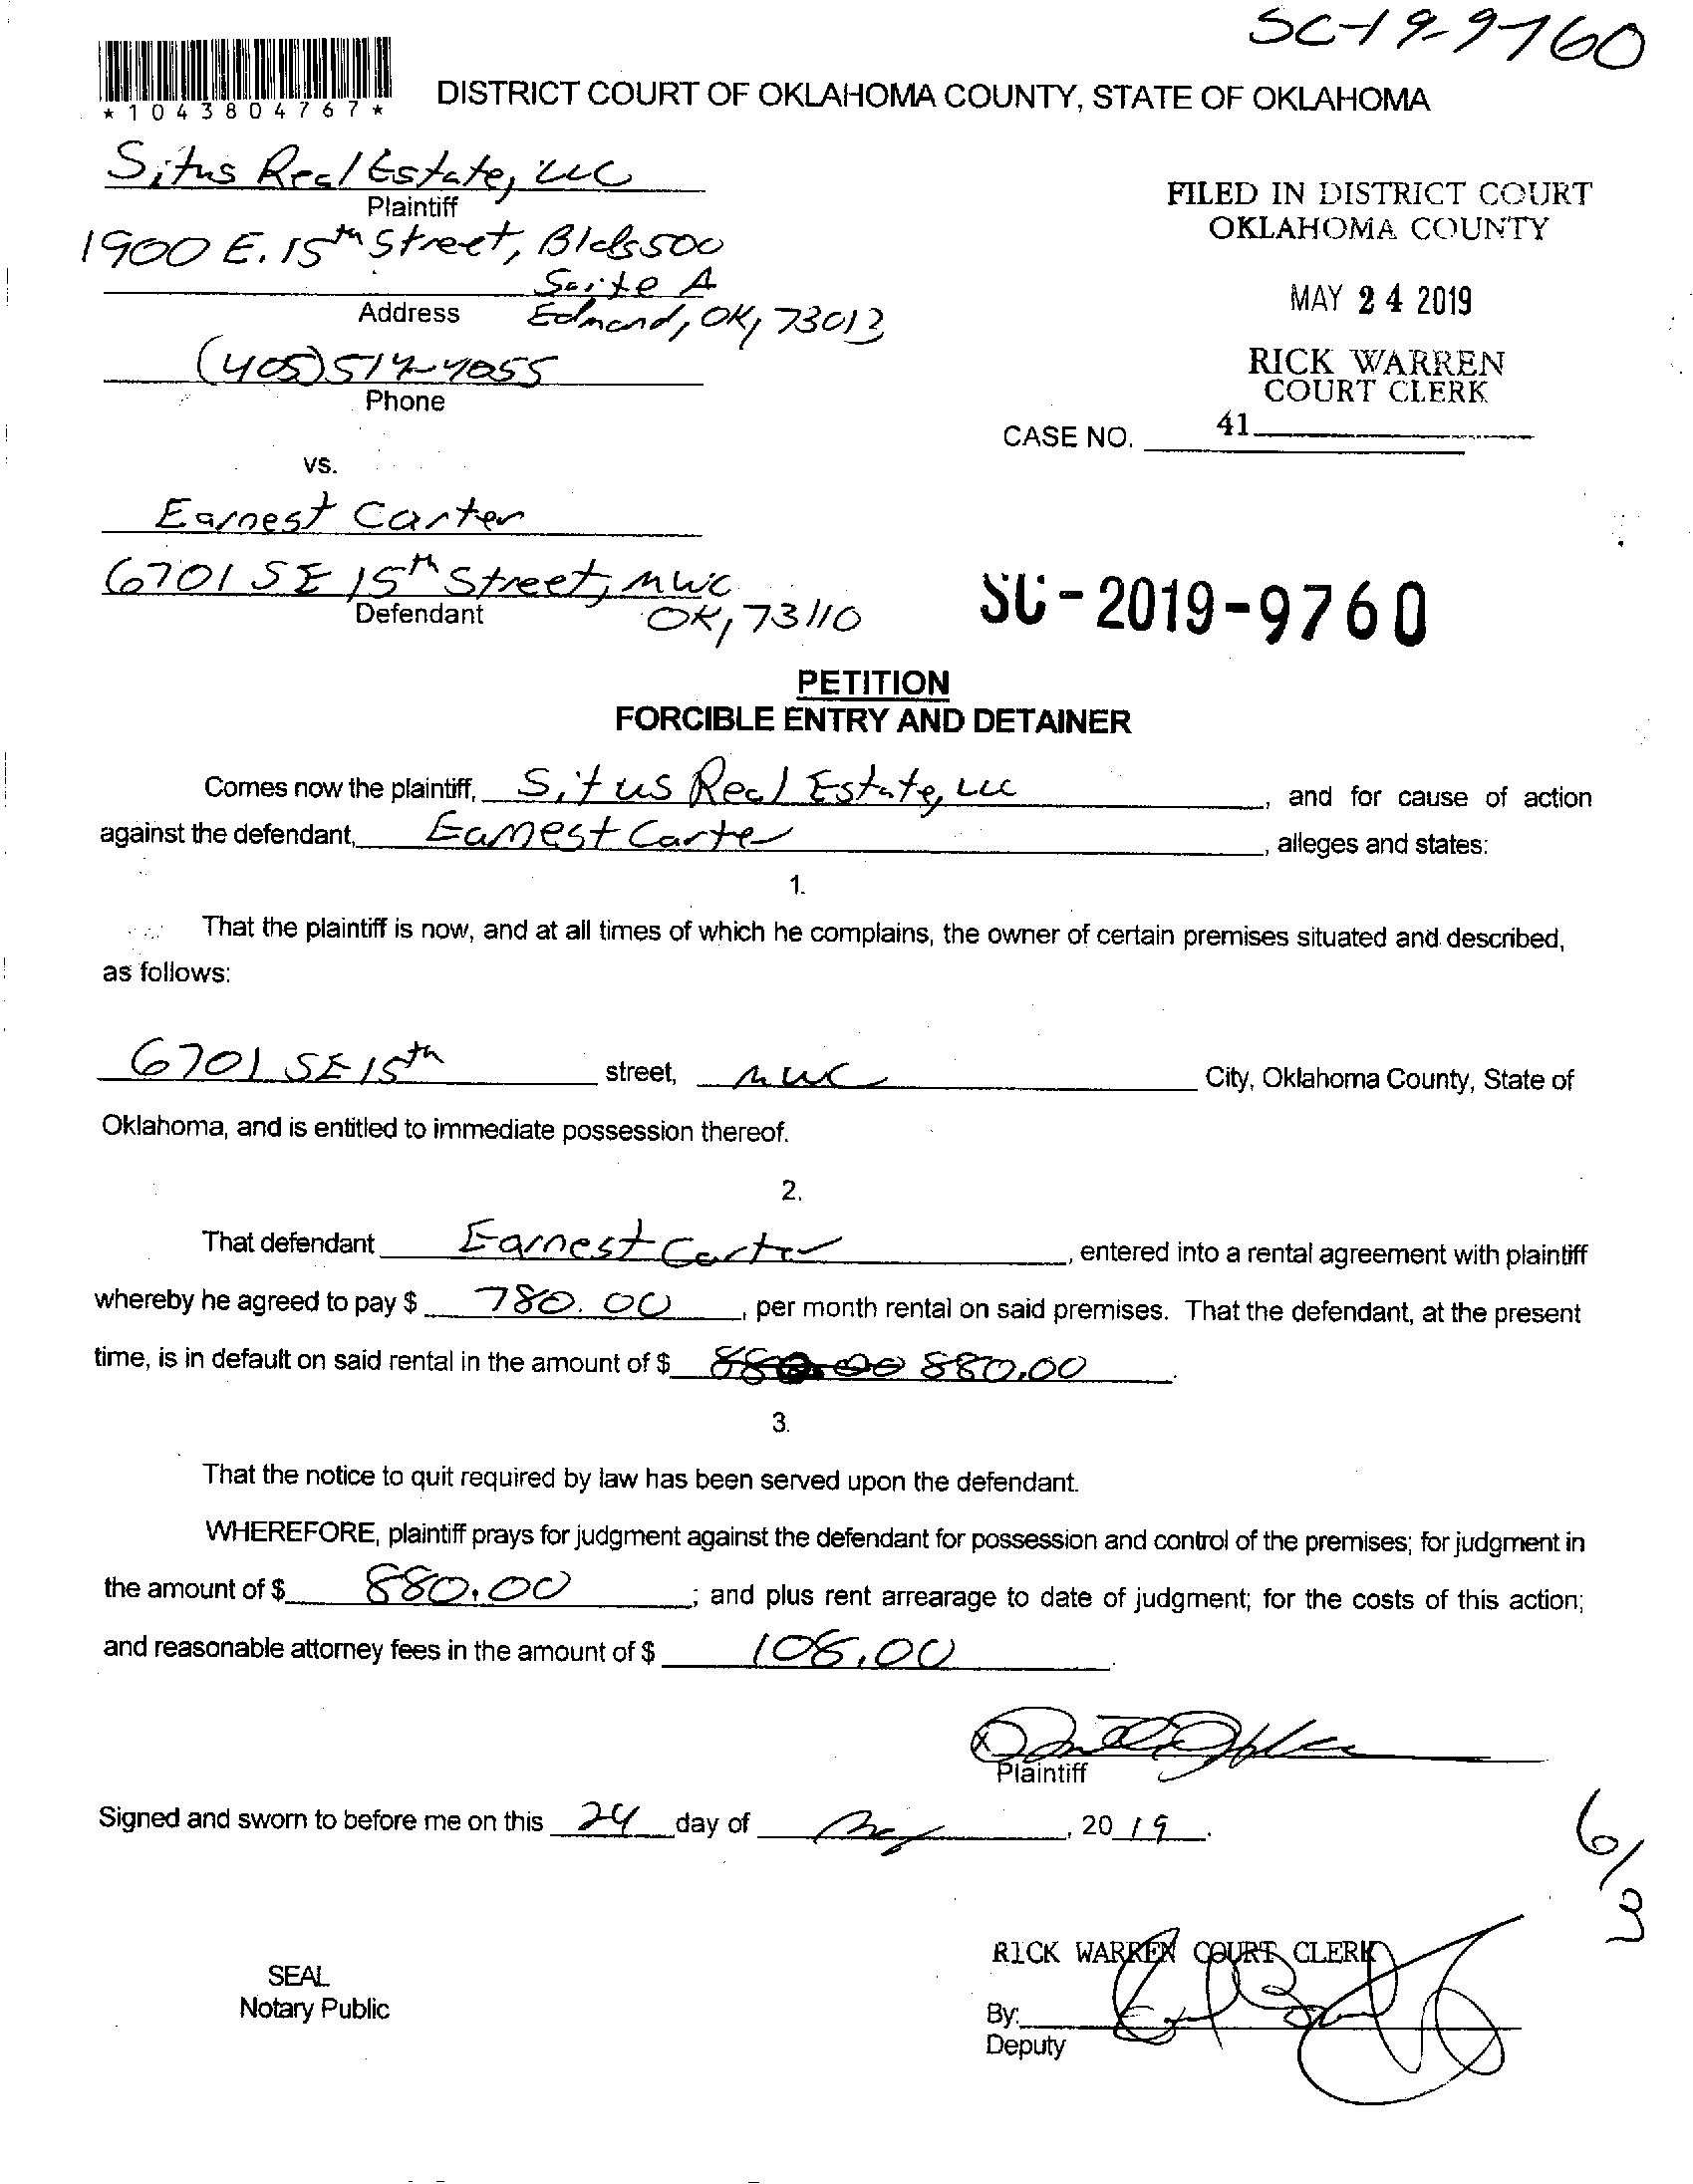 SC-19-9760
*1043804767*
DISTRICT COURT OF OKLAHOMA COUNTY, STATE OF OKLAHOMA
Situs Real Estate, LLC
Plaintiff
1900 E. 15th Street, Bldg 500
Suite A
Address
Edmond, OK, 73013
(405) 517-4055
Phone
FILED IN DISTRICT COURT
OKLAHOMA COUNTY
MAY 24 2019
RICK WARREN
COURT CLERK
CASE NO. 41
vs.
Earnest Carter
6701 SE 15th Street, MWC
Defendant
OK, 73110
SC-2019-9760
PETITION
FORCIBLE ENTRY AND DETAINER
Comes now the plaintiff, Situs Real Estate, LLC, and for cause of action
against the defendant, Earnest Carter, alleges and states:
1.
That the plaintiff is now, and at all times of which he complains, the owner of certain premises situated and described,
as follows:
6701 SE 15th street, MWC City, Oklahoma County, State of
Oklahoma, and is entitled to immediate possession thereof.
2.
That defendant Earnest Carter, entered into a rental agreement with plaintiff
whereby he agreed to pay $ 780.00, per month rental on said premises. That the defendant, at the present
time, is in default on said rental in the amount of $ 880.00.
3.
That the notice to quit required by law has been served upon the defendant.
WHEREFORE, plaintiff prays for judgment against the defendant for possession and control of the premises; for judgment in
the amount of $ 880.00; and plus rent arrearage to date of judgment; for the costs of this action;
and reasonable attorney fees in the amount of $ 108.00.
X
Plaintiff
Signed and sworn to before me on this 24 day of May, 2019.
6/3
RICK WARREN COURT CLERK
SEAL
Notary Public
By:
Deputy